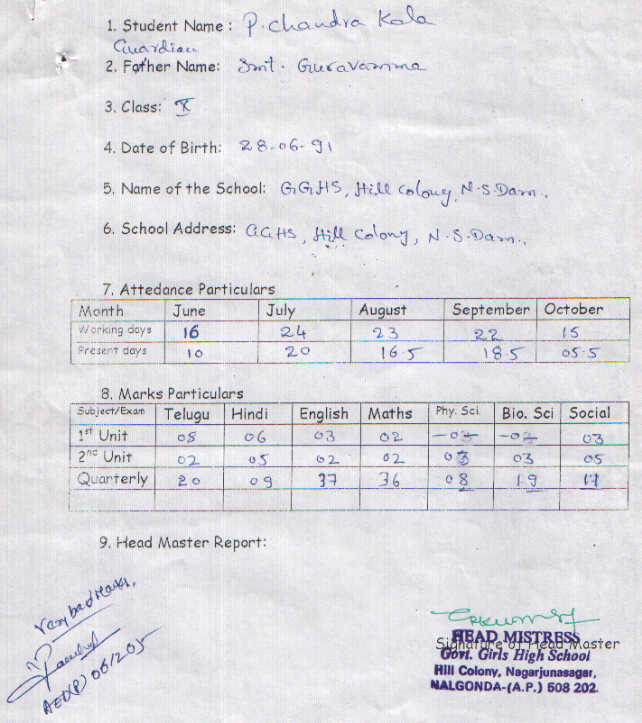 1. Student Name : P. Chandra Kala
Guardian
2. Father Name: Smt. Guravamma
3. Class: X
4. Date of Birth: 28-06-91
5. Name of the School: G.G.H.S, Hill colony, N.S.Dam.,
6. School Address: G.G.HS, Hill Colony, N.S.Dam.,
7. Attedance Particulars
Month June July August September October
Working days 16 24 23 22 15
Present days 10 20 16.5 18.5 05.5
8. Marks Particulars
Subject/Exam Telugu Hindi English Maths Phy. Sci. Bio. Sci Social
1st Unit 05 06 03 02 03
2nd Unit 02 05 02 02 03 03 05
Quarterly 20 09 37 36 08 19 17
9. Head Master Report:
Very bad Marks.
06/12/05
Signature of Head Master
HEAD MISTRESS
Govt. Girls High School
Hill Colony, Nagarjunasagar,
NALGONDA-(A.P.) 508 202.